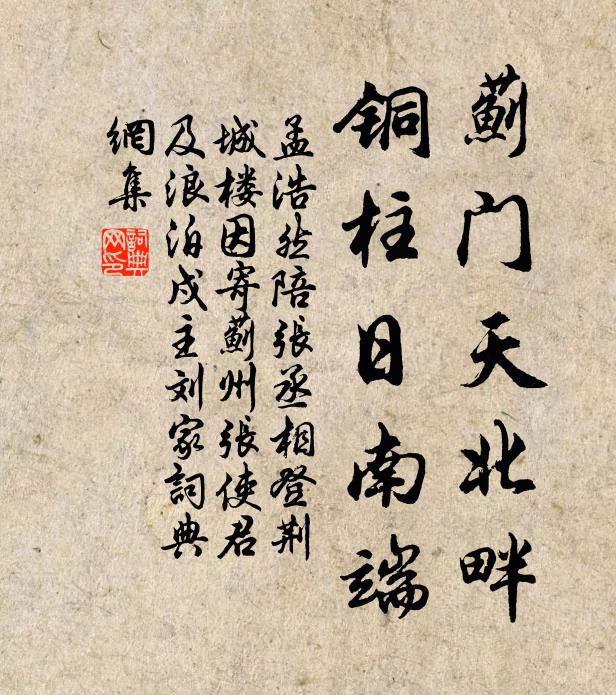 蓟门天北畔
铜柱日南端
孟浩然陪張丞相登荆
城楼因寄蓟州張使君
及浪泊戍主刘家詞典
網集
詞典
网印